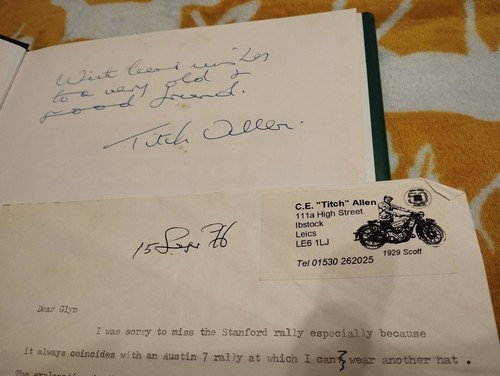 With best wishes
to a very old &
good friend.
Titch Allen.
C.E. "Titch" Allen
111a High Street
Ibstock
Leics
LE6 1LJ
Tel 01530 262025
1929 Scott
15 Sep 76
Dear Glyn
I was sorry to miss the Stanford rally especially because
it always coincides with an Austin 7 rally at which I can wear another hat .
The